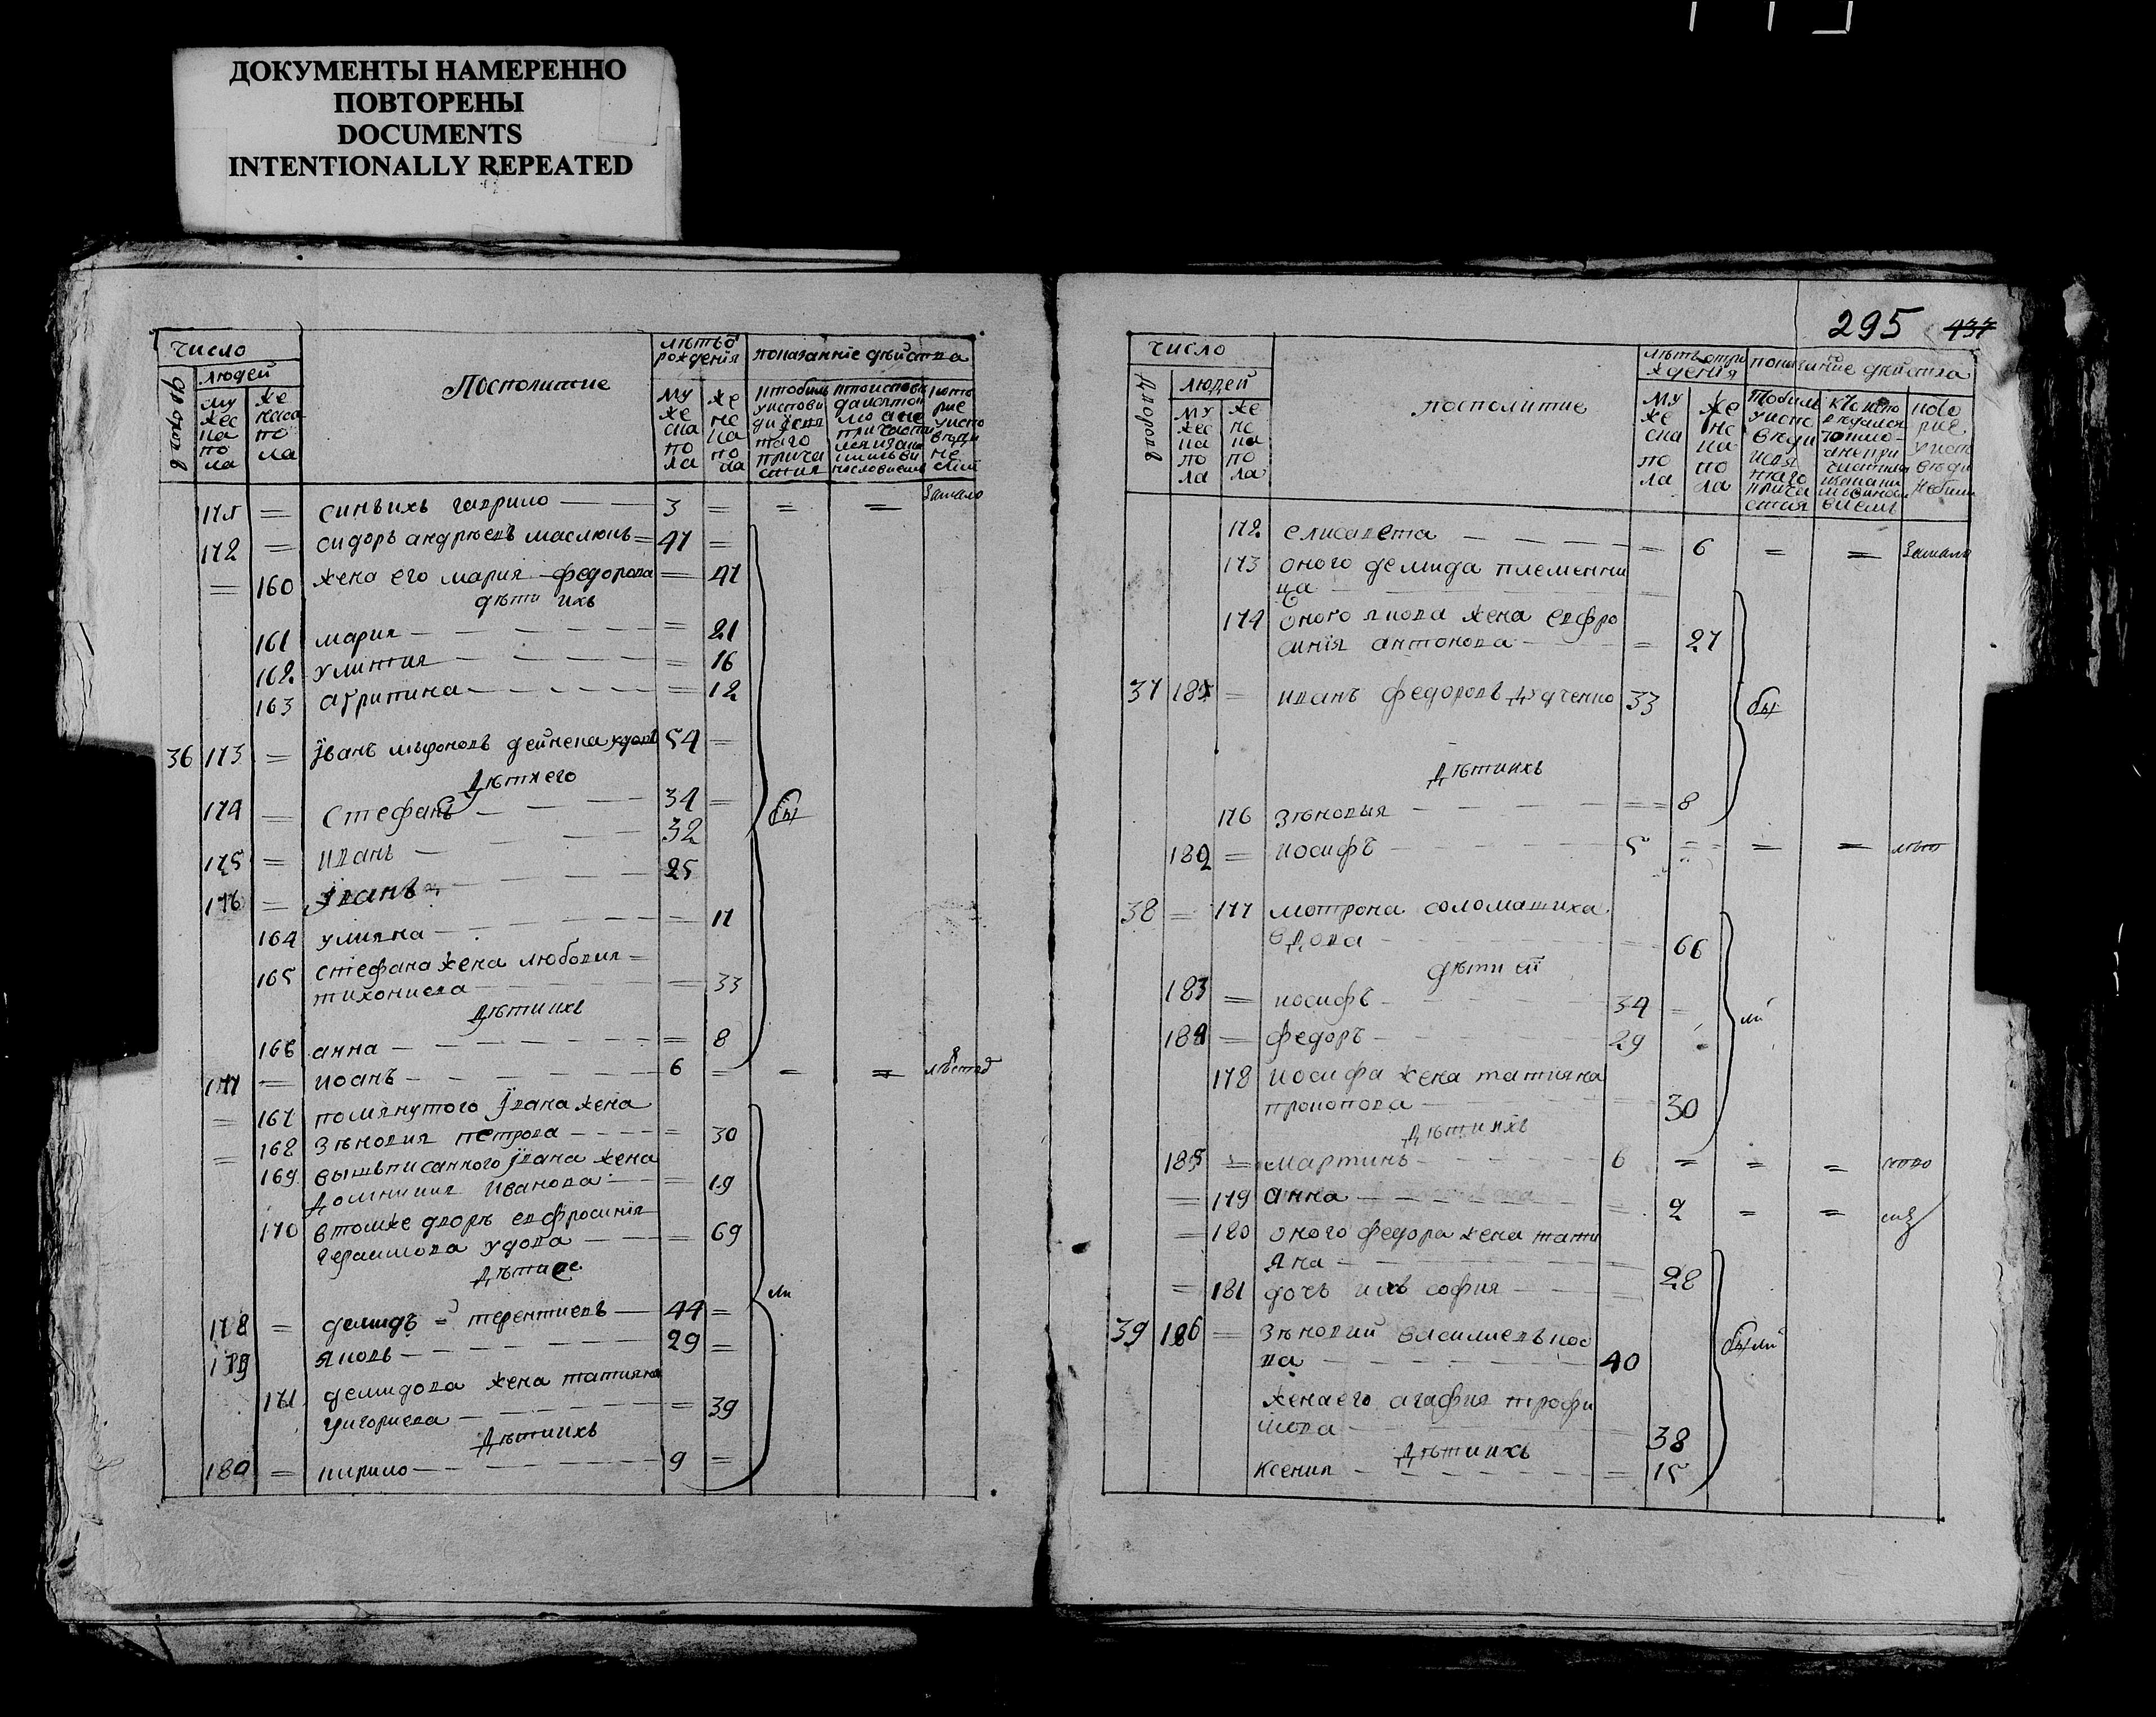 ДОКУМЕНТЫ НАМЕРЕННО
ПОВТОРЕНЫ
DOCUMENTS
INTENTIONALLY REPEATED
число
людей
дворовъ
му жес ка по ла
же неска по ла
Посполитие
лѣтъ ѿ рождения
му же ска по ла
же нс ка по ла
показанніе дѣйства
= синъ ихъ гаврило — 3 = = = замало
172 = сидоръ андрѣевъ маслюкъ = 47 =
= 160 жена его мария федорова = 47
дѣти ихъ
161 мария = 21
162 улития = 16
163 агрипина = 12
36 173 = Їванъ мѣроновъ дейнека удовъ 54 =
дѣти его
174 = Стефанъ 34 =
175 = иванъ 32
176 = Їванъ 25
164 улияна = 17
165 стефана жена любовия =
тихониева = 33
дѣти ихъ
166 анна = 8
177 = иоанъ 6 = = =
= 167 помянутого Ївана жена
= 168 зѣновия петрова = 30
169 вышъписанного Ївана жена
домникия иванова = 19
170 втомже дворѣ евфросинїя
герасимова удова = 69
дѣти ее
178 = демидъ = терентиевъ 44 =
179 яковъ 29 =
171 демидова жена татияна
григориева = 39
дѣти ихъ
180 = кирило 9 =
295 437
число
людей
дворовъ
му жес ка по ла
же нс ка по ла
посполитие
лѣтъ отро ждения
му же ска по ла
же нс ка по ла
показание дѣйства
172 елисавета = 6 = = замало
173 оного демида племенни
ца
174 оного якова жена евфро
синїя антонова = 27
37 181 = иванъ федоровъ дудченко 33
бы
дѣти ихъ
176 зѣновыя = 8
182 = иосифъ 5 = = =
38 = 177 мотрона соломашиха
вдова 66
дѣти ей
183 = иосифъ 34
ли
184 = федоръ 29
178 иосифа жена татияна
прокопова 30
дѣти ихъ
185 = мартинъ 6 = = =
= 179 анна = 2 = =
= 180 оного федора жена тати
яна 28
= 181 дочъ ихъ софия
39 186 = зѣновий василиевъ кос
ва 40
были
жена его агафия трофи
мова 38
дѣти ихъ
ксения = 15